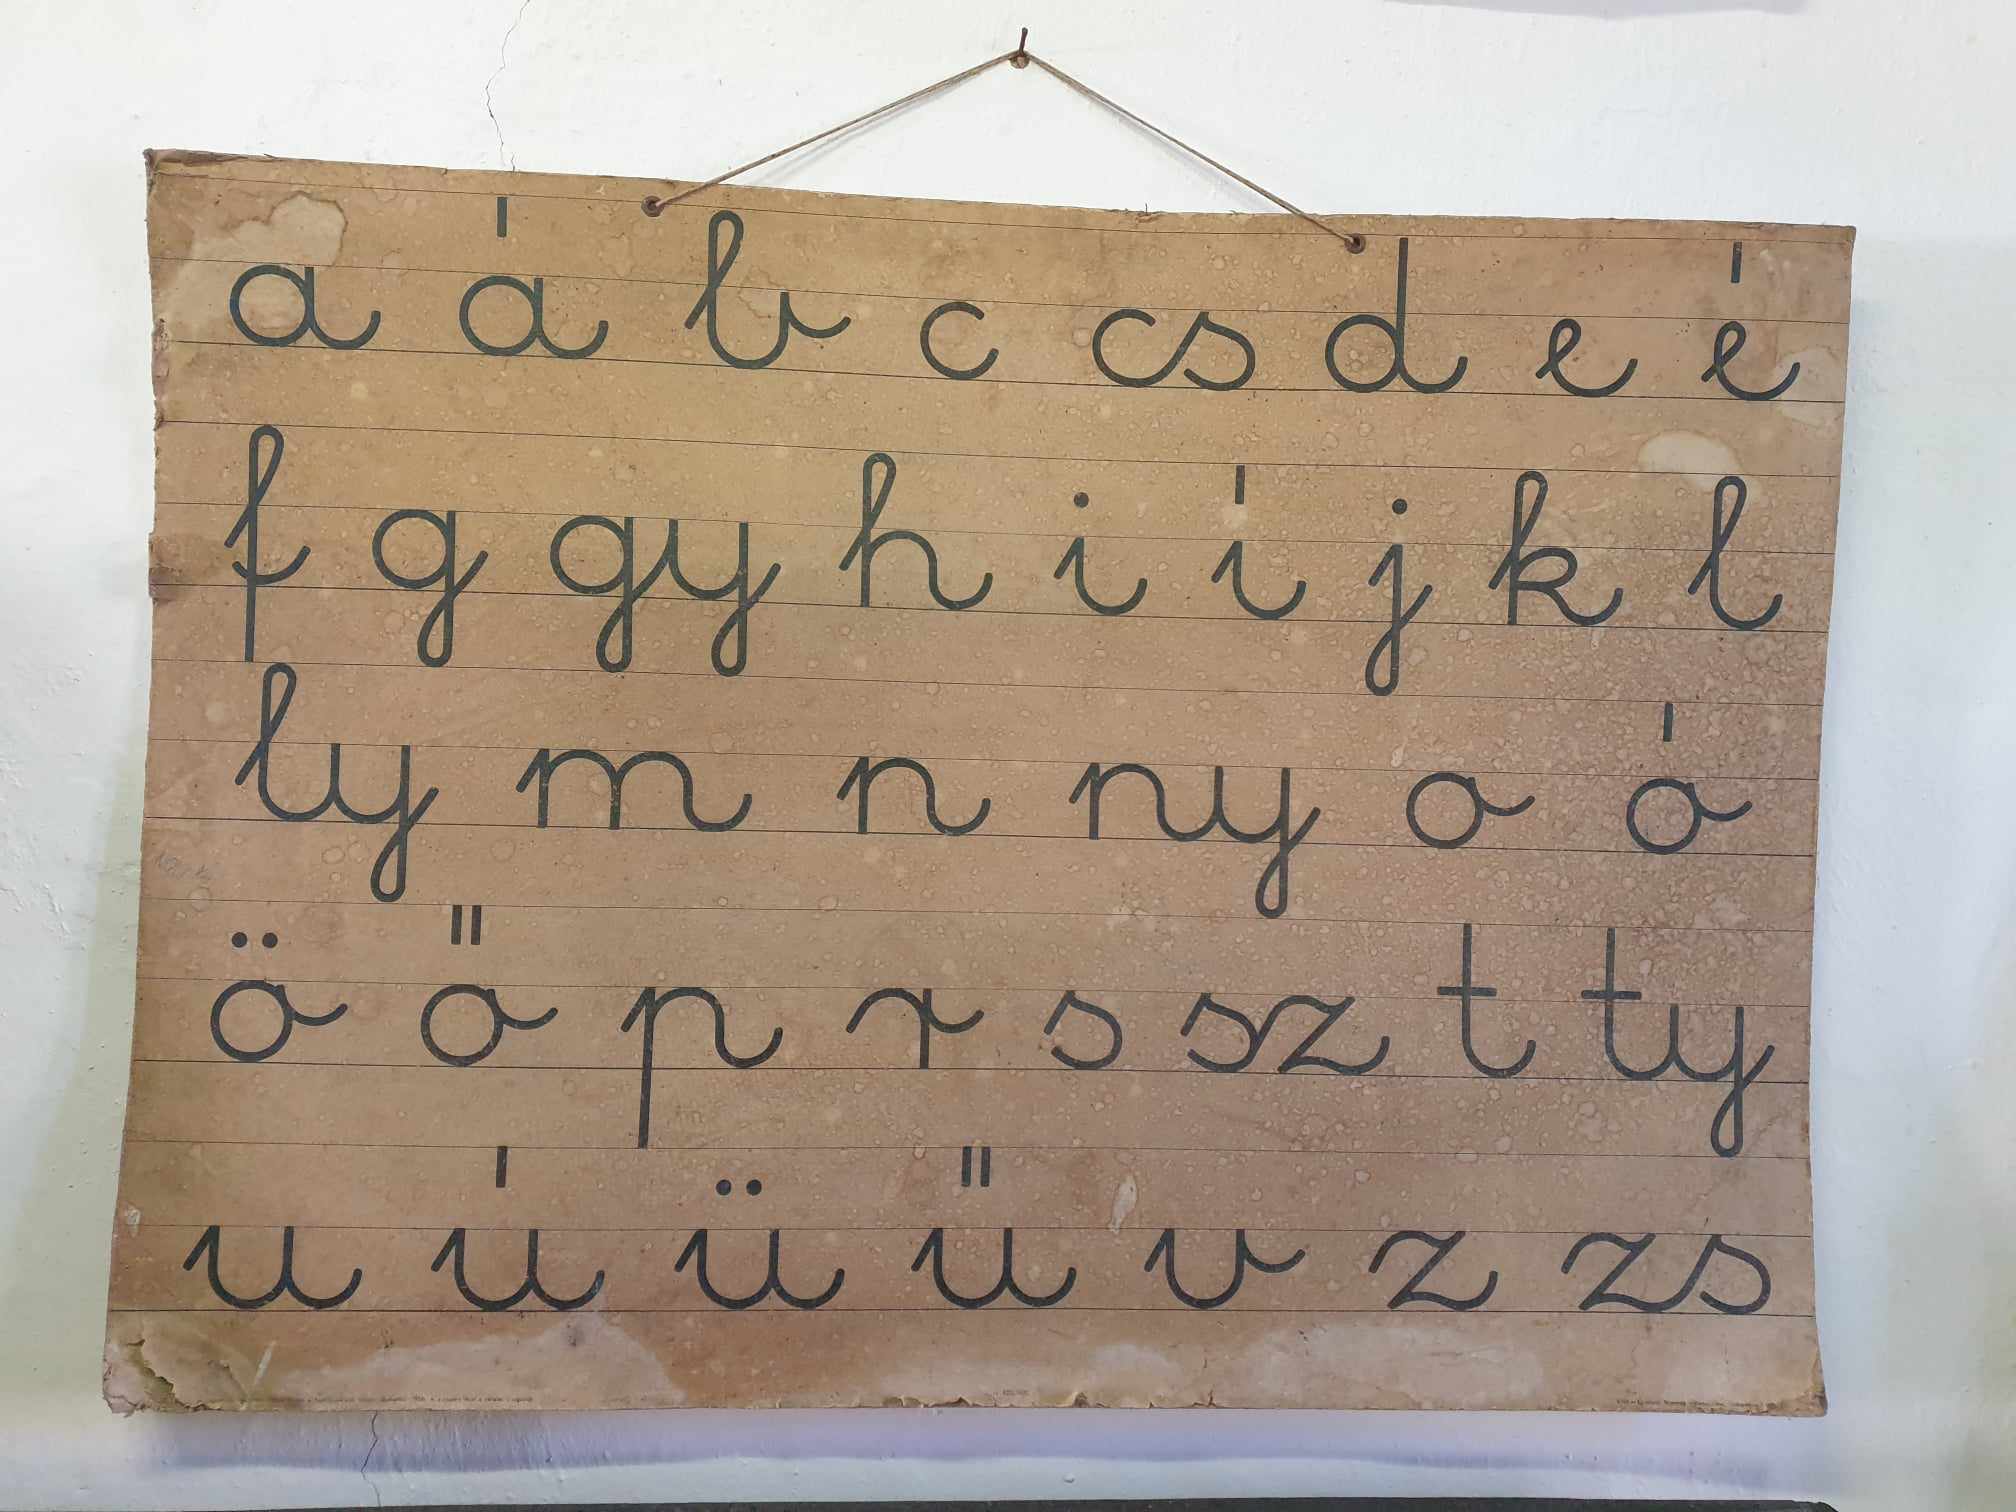 a á b c cs d e é
f g gy h i í j k l
ly m n ny o ó
ö ő p r s sz t ty
u ú ü ű v z zs